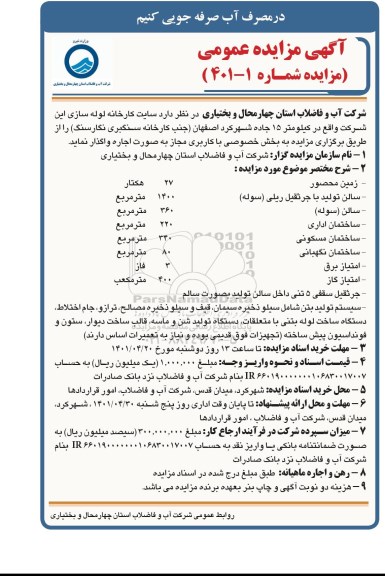 در مصرف آب صرفه جویی کنیم
آگهی مزایده عمومی
(مزایده شماره ۱-۴۰۱)
شرکت آب و فاضلاب استان چهارمحال و بختیاری
شرکت آب و فاضلاب استان چهارمحال و بختیاری در نظر دارد سایت کارخانه لوله سازی این
شرکت واقع در کیلومتر ۱۵ جاده شهرکرد اصفهان (جنب کارخانه سنگبری نگارسنگ) را از
طریق برگزاری مزایده به بخش خصوصی با کاربری مجاز به صورت اجاره واگذار نماید.
۱- نام سازمان مزایده گزار: شرکت آب و فاضلاب استان چهارمحال و بختیاری
۲- شرح مختصر موضوع مورد مزایده :
- زمین محصور ۲۷ هکتار
- سالن تولید با جرثقیل ریلی (سوله) ۱۴۰۰ مترمربع
- سالن (سوله) ۳۶۰ مترمربع
- ساختمان اداری ۲۲۰ مترمربع
- ساختمان مسکونی ۳۴۰ مترمربع
- ساختمان نگهبانی ۸۰ مترمربع
- امتیاز برق ۳ فاز
- امتیاز گاز ۴۰۰ مترمکعب
- جرثقیل سقفی ۵ تنی داخل سالن تولید بصورت سالم
- سیستم تولید بتن شامل سیلو ذخیره سیمان، قیف و سیلو ذخیره مصالح، ترازو، جام اختلاط،
دستگاه ساخت لوله بتنی با متعلقات، دستگاه تولید شن و ماسه، قالب ساخت دیوار، ستون و
فونداسیون پیش ساخته (تجهیزات فوق قدیمی بوده و نیاز به تعمیرات اساسی دارند)
۳- مهلت خرید اسناد مزایده: تا ساعت ۱۳ روز دوشنبه مورخ ۱۴۰۱/۰۴/۲۰
۴- قیمت اسناد و نحوه واریز وجه: مبلغ ۱,۰۰۰,۰۰۰ (یک میلیون ریال) به حساب
IR ۶۶۰۱۹۰۰۰۰۰۰۰۱۰۶۸۳۰۰۱۷۰۰۷ بنام شرکت آب و فاضلاب نزد بانک صادرات
۵- محل خرید اسناد مزایده: شهرکرد، میدان قدس، شرکت آب و فاضلاب، امور قراردادها
۶- مهلت و محل ارائه پیشنهاد: تا پایان وقت اداری روز پنج شنبه ۱۴۰۱/۰۴/۳۰، شهرکرد،
میدان قدس، شرکت آب و فاضلاب ، امور قراردادها
۷- میزان سپرده شرکت در فرآیند ارجاع کار: مبلغ ۳۰۰,۰۰۰,۰۰۰ (سیصد میلیون ریال) به
صورت ضمانتنامه بانکی یا واریز نقد به حساب IR ۶۶۰۱۹۰۰۰۰۰۰۰۱۰۶۸۳۰۰۱۷۰۰۷ بنام
شرکت آب و فاضلاب نزد بانک صادرات
۸- رهن و اجاره ماهیانه: طبق مبلغ درج شده در اسناد مزایده
۹- هزینه دو نوبت آگهی و چاپ بنر بعهده برنده مزایده می باشد.
روابط عمومی شرکت آب و فاضلاب استان چهارمحال و بختیاری